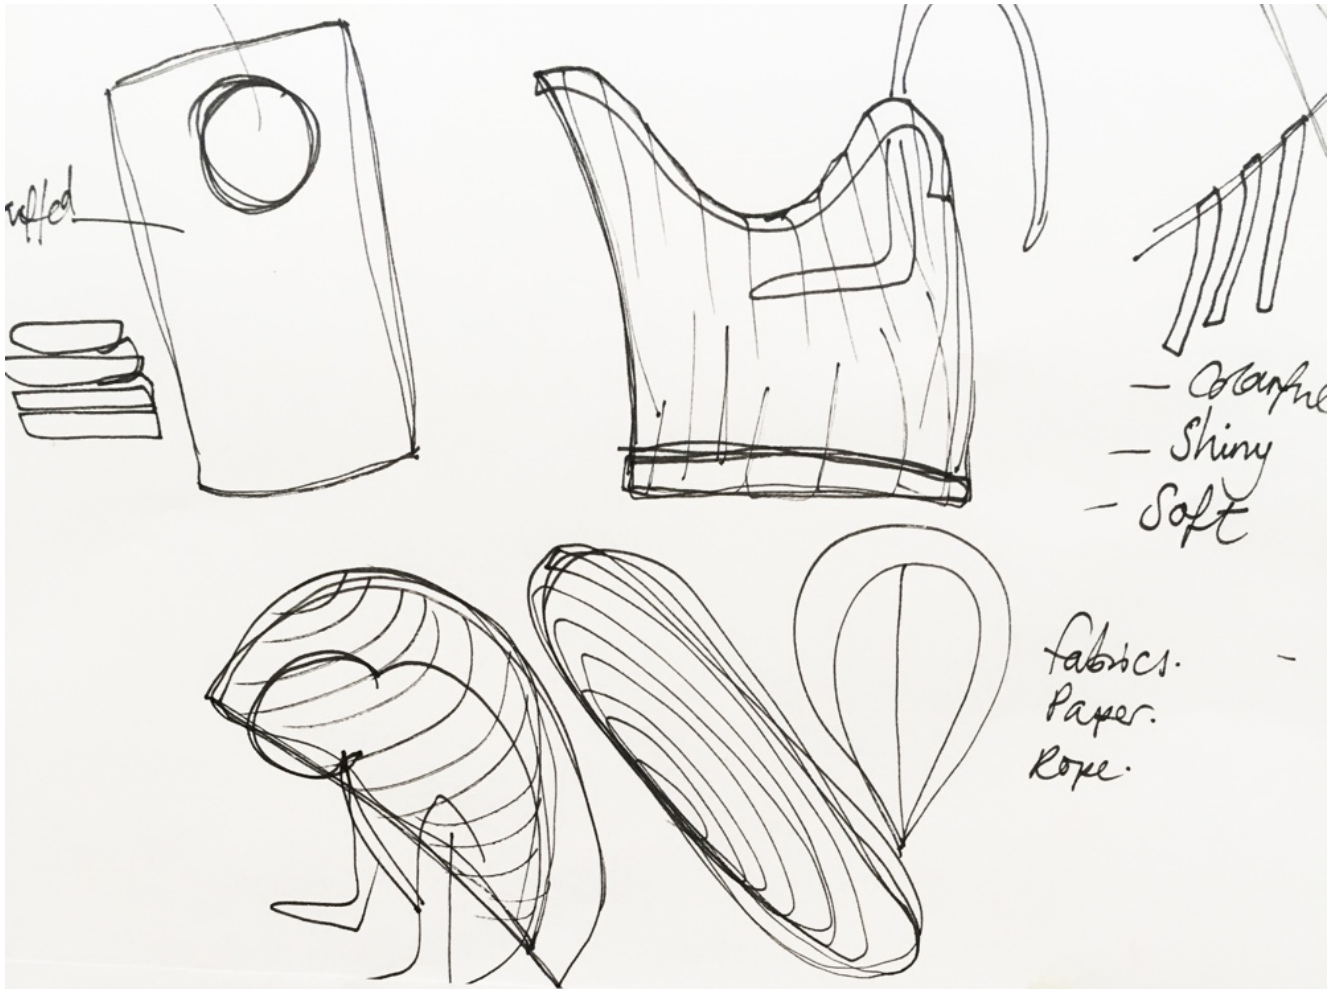 - Colorful
- Shiny
- Soft
fabrics.
Paper.
Rope.